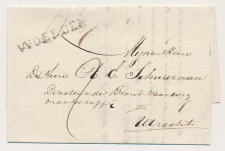 WOERDEN
Mijne Heere
De Heere A. C. Schuurman
Directeur der Brand Waarborg
maatschappij
te
Utrecht